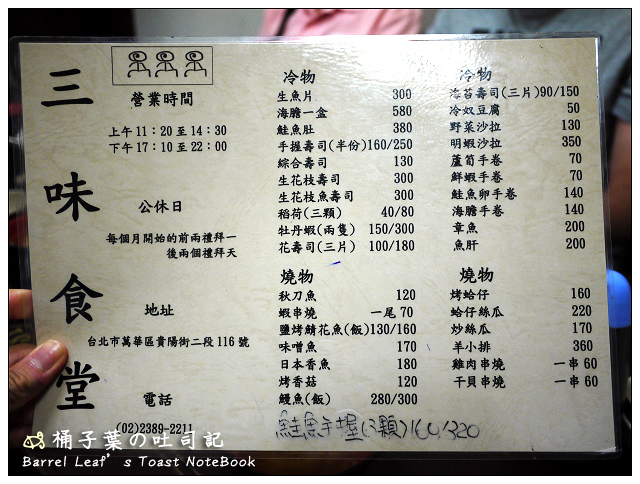 三味食堂
營業時間
上午11：20至14：30
下午17：10至22：00
公休日
每個月開始的前兩禮拜一
後兩個禮拜天
地址
台北市萬華區貴陽街二段116號
電話
(02)2389-2211
冷物
生魚片 300
海膽一盒 580
鮭魚肚 380
手握壽司(半份)160/250
綜合壽司 130
生花枝壽司 300
生花枝魚壽司 300
稻荷(三顆) 40/80
牡丹蝦(兩隻) 150/300
花壽司(三片) 100/180
燒物
秋刀魚 120
蝦串燒 一尾70
鹽烤鯖花魚(飯)130/160
味噌魚 170
日本香魚 180
烤香菇 120
鰻魚(飯) 280/300
鮭魚手握(3顆)160/320
冷物
海苔壽司(三片)90/150
冷奴豆腐 50
野菜沙拉 130
明蝦沙拉 350
蘆筍手卷 70
鮮蝦手卷 70
鮭魚卵手卷 140
海膽手卷 140
章魚 200
魚肝 200
燒物
烤蛤仔 160
蛤仔絲瓜 220
炒絲瓜 170
羊小排 360
雞肉串燒 一串60
干貝串燒 一串60
桶子葉の吐司記
Barrel Leaf's Toast NoteBook